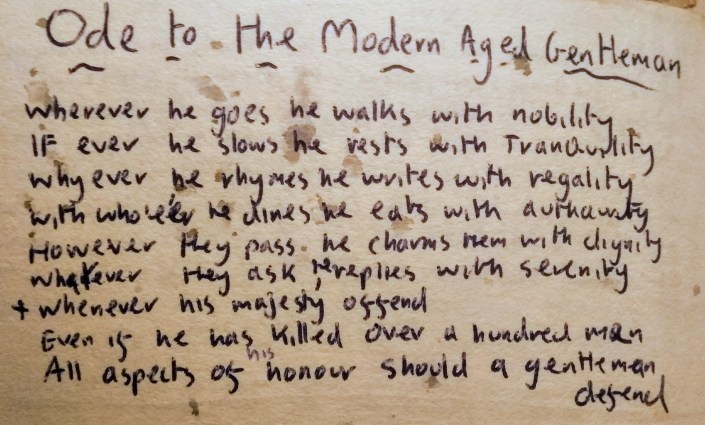 Ode to the Modern Aged Gentleman
wherever he goes he walks with nobility
IF ever he slows he rests with Tranquility
whyever he rhymes he writes with regality
with who'e'er he dines he eats with authaurity
However they pass he charms them with dignity
whatever they ask he replies with serenity
+ whenever his majesty offend
Even if he has killed over a hundred men
All aspects of his honour should a gentleman
defend